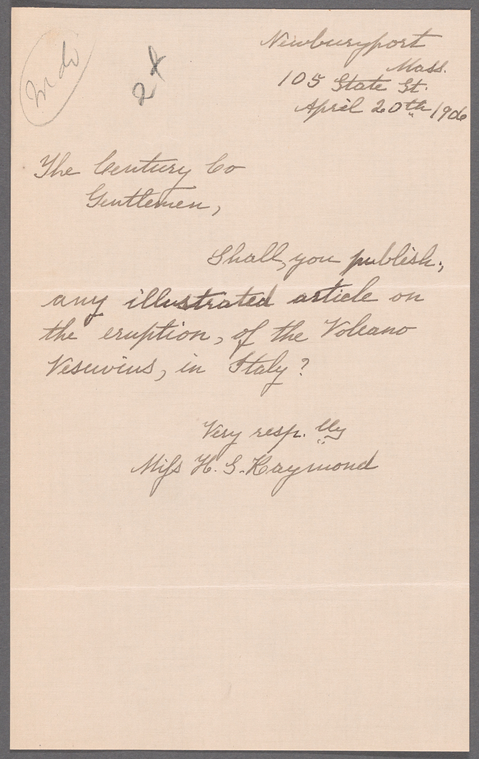 Newburyport
Mass.
105 State St.
April 20th 1906
24
The Century Co
Gentlemen,
Shall, you publish,
any illustrated article on
the eruption, of the Volcano
Vesuvius, in Italy?
Very resp. lly
Miss H. S. Raymond